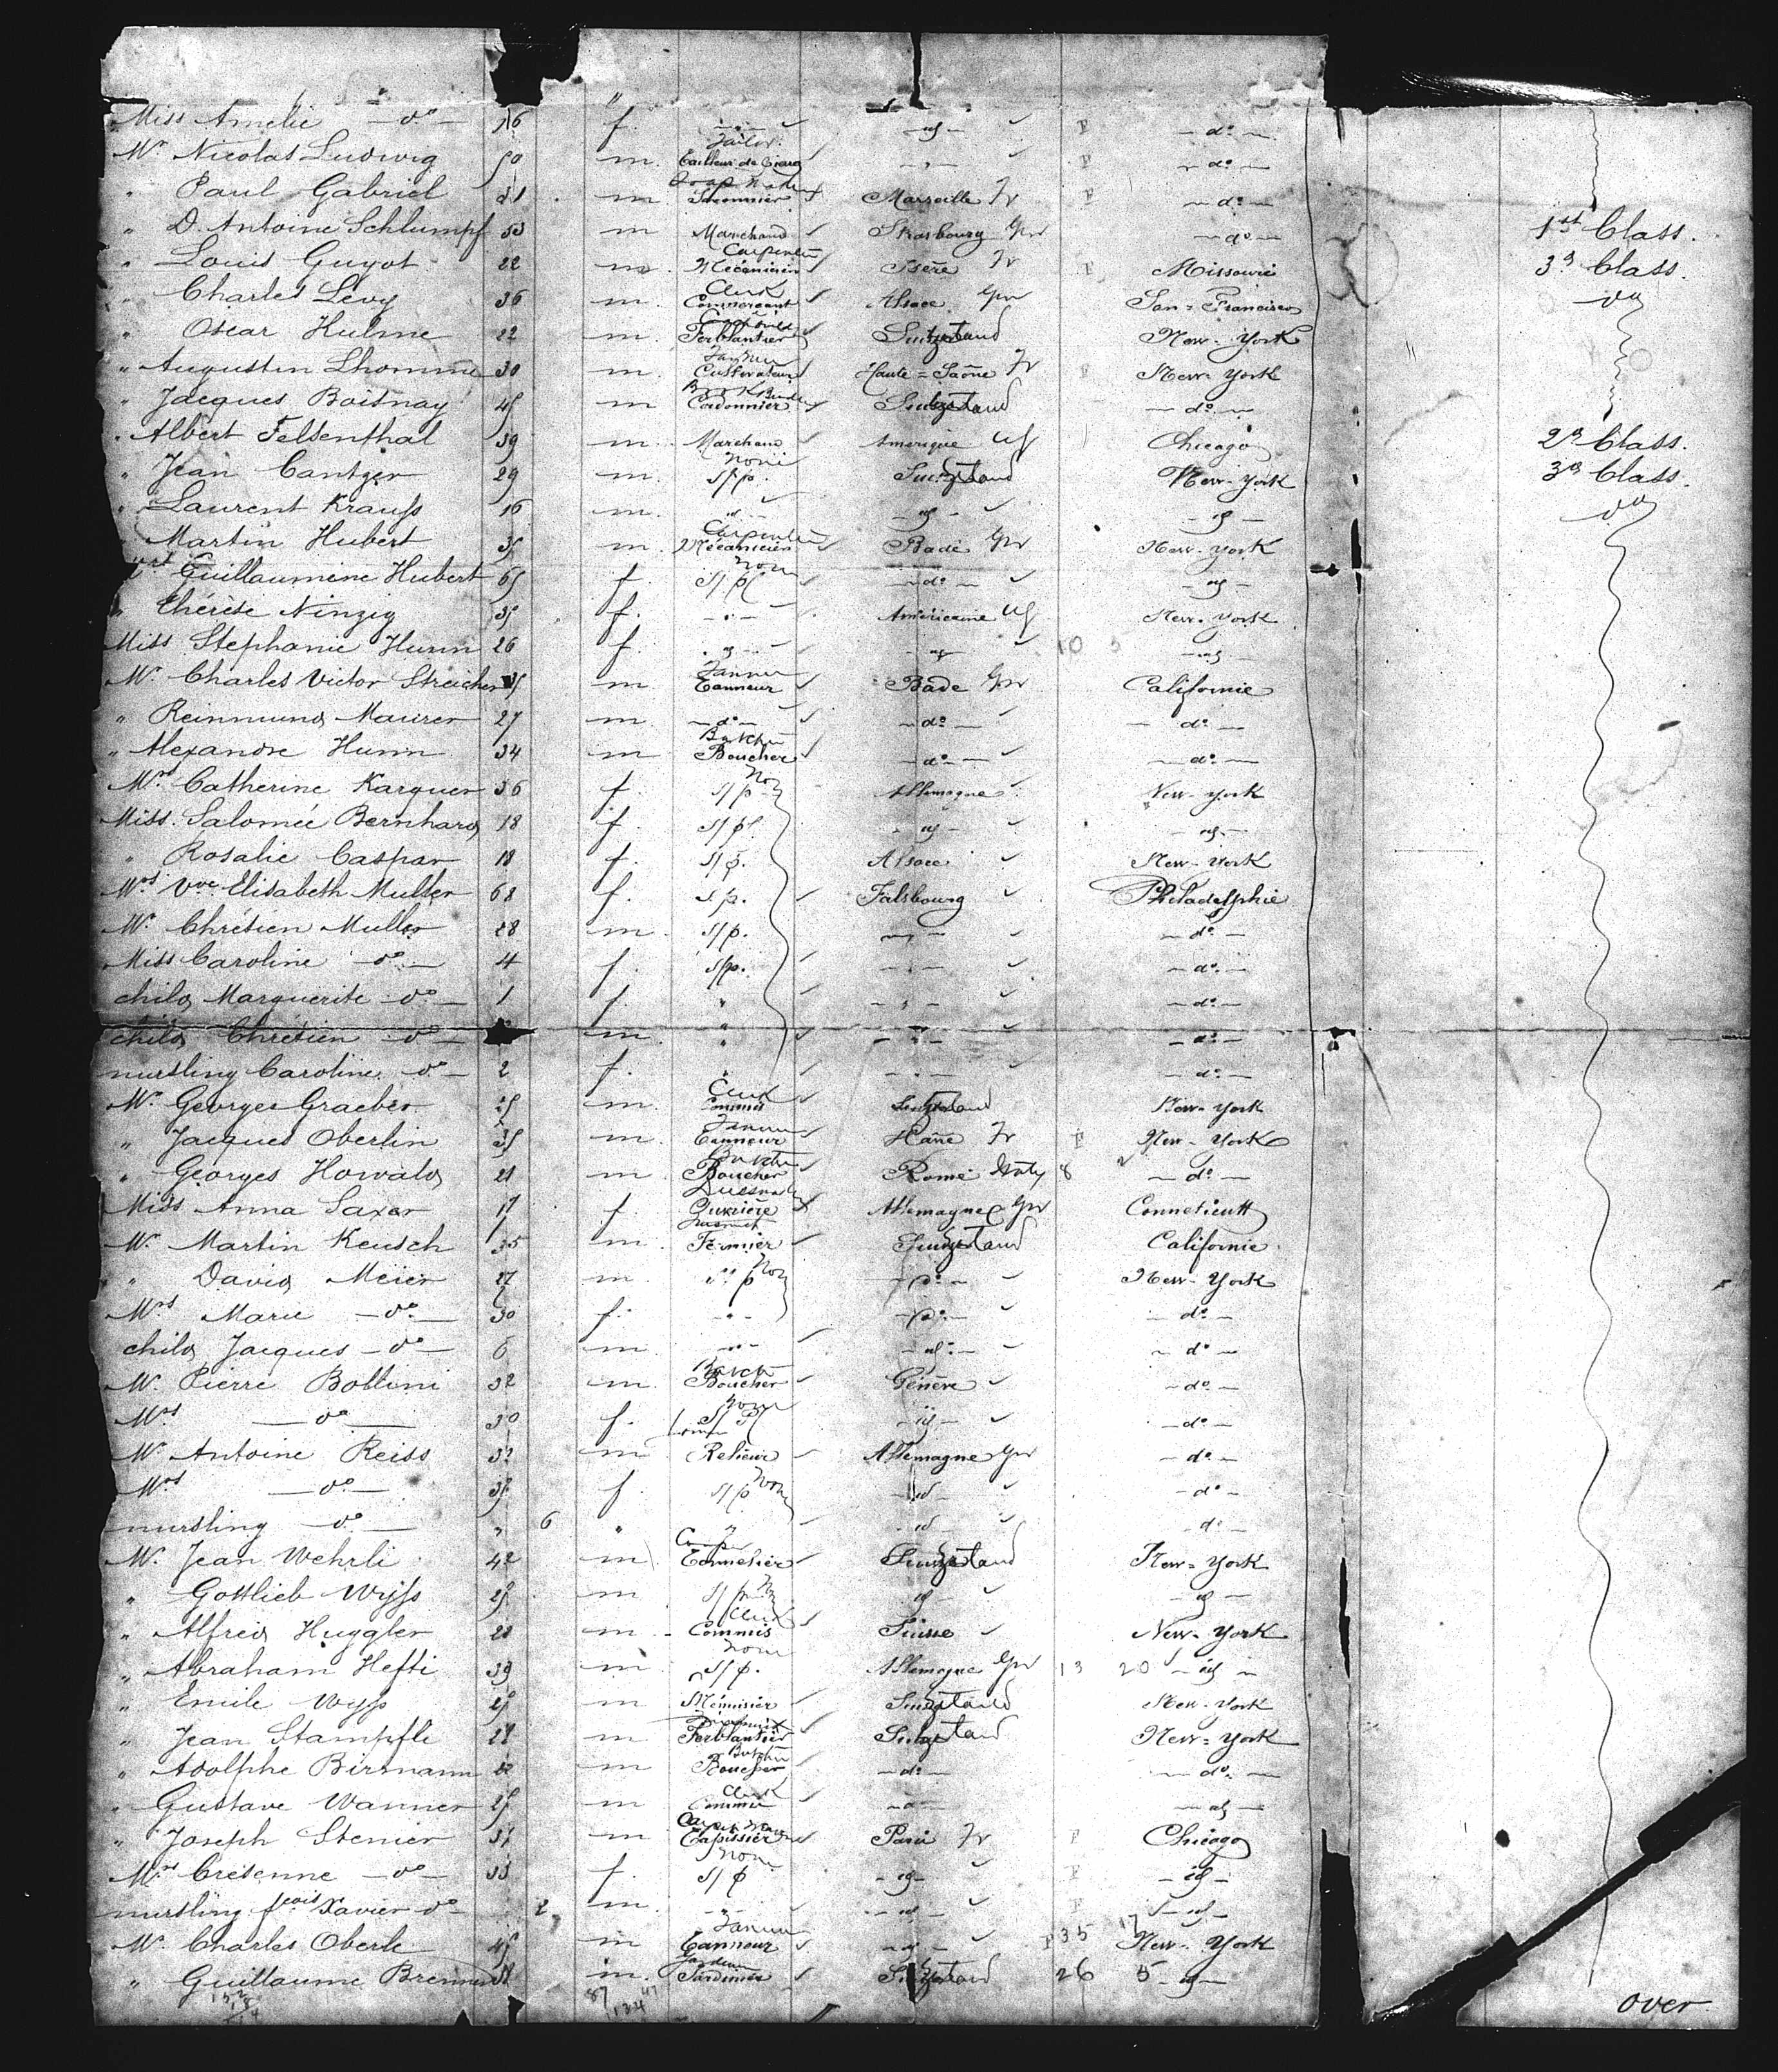 Miss Amélie —do— 16 f. —"— —id— F —do—
Tailor
Mr. Nicolas Ludwig 50 m. Tailleur de —"— F —do—
Soap Maker
" Paul Gabriel 31 m. Savonnier Marseille Fr F —do—
" D. Antoine Schlumpf 53 m Marchand Strasbourg Ger —do— 1st Class.
Carpenter
" Louis Guyot 22 m. Mécanicien Isère Fr F Missouri 3d Class.
Clerk
" Charles Lévy 36 m. Commerçant Alsace Ger San-Francisco do
" Oscar Hulme 22 m. Ferblantier Switzerland New-York
Farmer
" Augustin Lhomme 30 m. Cultivateur Haute-Saône Fr F New-York
" Jacques Boisnay 45 m Cordonnier Switzerland —do—
" Albert Felsenthal 39 m. Marchand Amérique US Chicago 2d Class.
None
" Jean Cantzer 29 m. s/p. Switzerland New-York 3d Class.
" Laurent Krauss 16 m. —id— —id— —id— do
Carpenter
" Martin Hubert 35 m. Mécanicien Bade Ger New-York
None
Guillaumine Hubert 65 f. s/p —do— —id—
" Thérèse Ninzig 35 f. —"— Américaine US New-York
Miss Stephanie Hunn 26 f. —id— —id— 10 3 —id—
Tanner
Mr. Charles Victor Streicher 35 m Tanneur Bade Ger Californie
" Reinmund Maurer 27 m. —do— —do— —do—
Butcher
" Alexandre Hunn 34 m Boucher —do— —do—
No
Mrs Catherine Karquer 36 f. s/p Allemagne New-York
Miss Salomée Bernhard 18 f. s/p —id— —id—
" Rosalie Caspar 18 f. s/p. Alsace New-York
Mrs Vve Elisabeth Muller 68 f. s/p. Falsbourg Philadelphie
Mr. Chrétien Muller 28 m. s/p. —"— —do—
Miss Caroline —do— 4 f. s/p. —"— —do—
child Marguerite —do— 1 f. " —"— —do—
child Chrétien —do— m. " —"— —do—
nursling Caroline —do— 2 f. " —"— —do—
Clerk
Mr. Georges Graeber 25 m. Commis Switzerland New-York
Tanner
" Jacques Oberlin 35 m. Tanneur Fr F New-York
Butcher
" Georges Howald 21 m Boucher Rome Italy 8 2 —do—
Miss Anna Saxer 17 f. Ouvrière Allemagne Ger Connecticutt
Mr. Martin Keusch 35 m. Fermier Switzerland Californie
Non
" David Meier 27 m. s/p —do— New-York
Mrs Marie —do— 30 f. —"— —do— —do—
child Jacques —do— 6 m —"— —id— —do—
Butcher
Mr. Pierre Bollini 32 m. Boucher Genève —do—
None
Mrs —do— 30 f. s/p —id— —do—
Mr. Antoine Reiss 32 m Relieur Allemagne Ger —do—
None
Mrs —do— 35 f. s/p —id— —do—
nursling —do— " 6 " " —id— —do—
Mr. Jean Wehrli 42 m. Tonnelier Switzerland New-York
" Gottlieb Wyss 25 m s/p —id— —id—
Clerk
" Alfred Huggler 28 m. Commis Suisse New-York
None
" Abraham Hefti 39 m. s/p. Allemagne Ger 13 20 —id—
" Emile Wyss 25 m Menuisier Switzerland New-York
" Jean Stampfli 28 m Ferblantier Switzerland New-York
Butcher
" Adolphe Birmann 22 m Boucher —do— —do—
Clerk
" Gustave Wanner 25 m Commis —do— —id—
" Joseph Stenier 37 m Tapissier Paris Fr F Chicago
None
Mrs Crésenne —do— 33 f s/p —id— F —id—
nursling fcois Xavier do 2 m. —"— —id— F —id—
Tanner
Mr. Charles Oberle 45 m Tanneur —id— F 35 17 New-York
" Guillaume Brenner m. Jardinier Switzerland 26 5 —id—
87
134
over